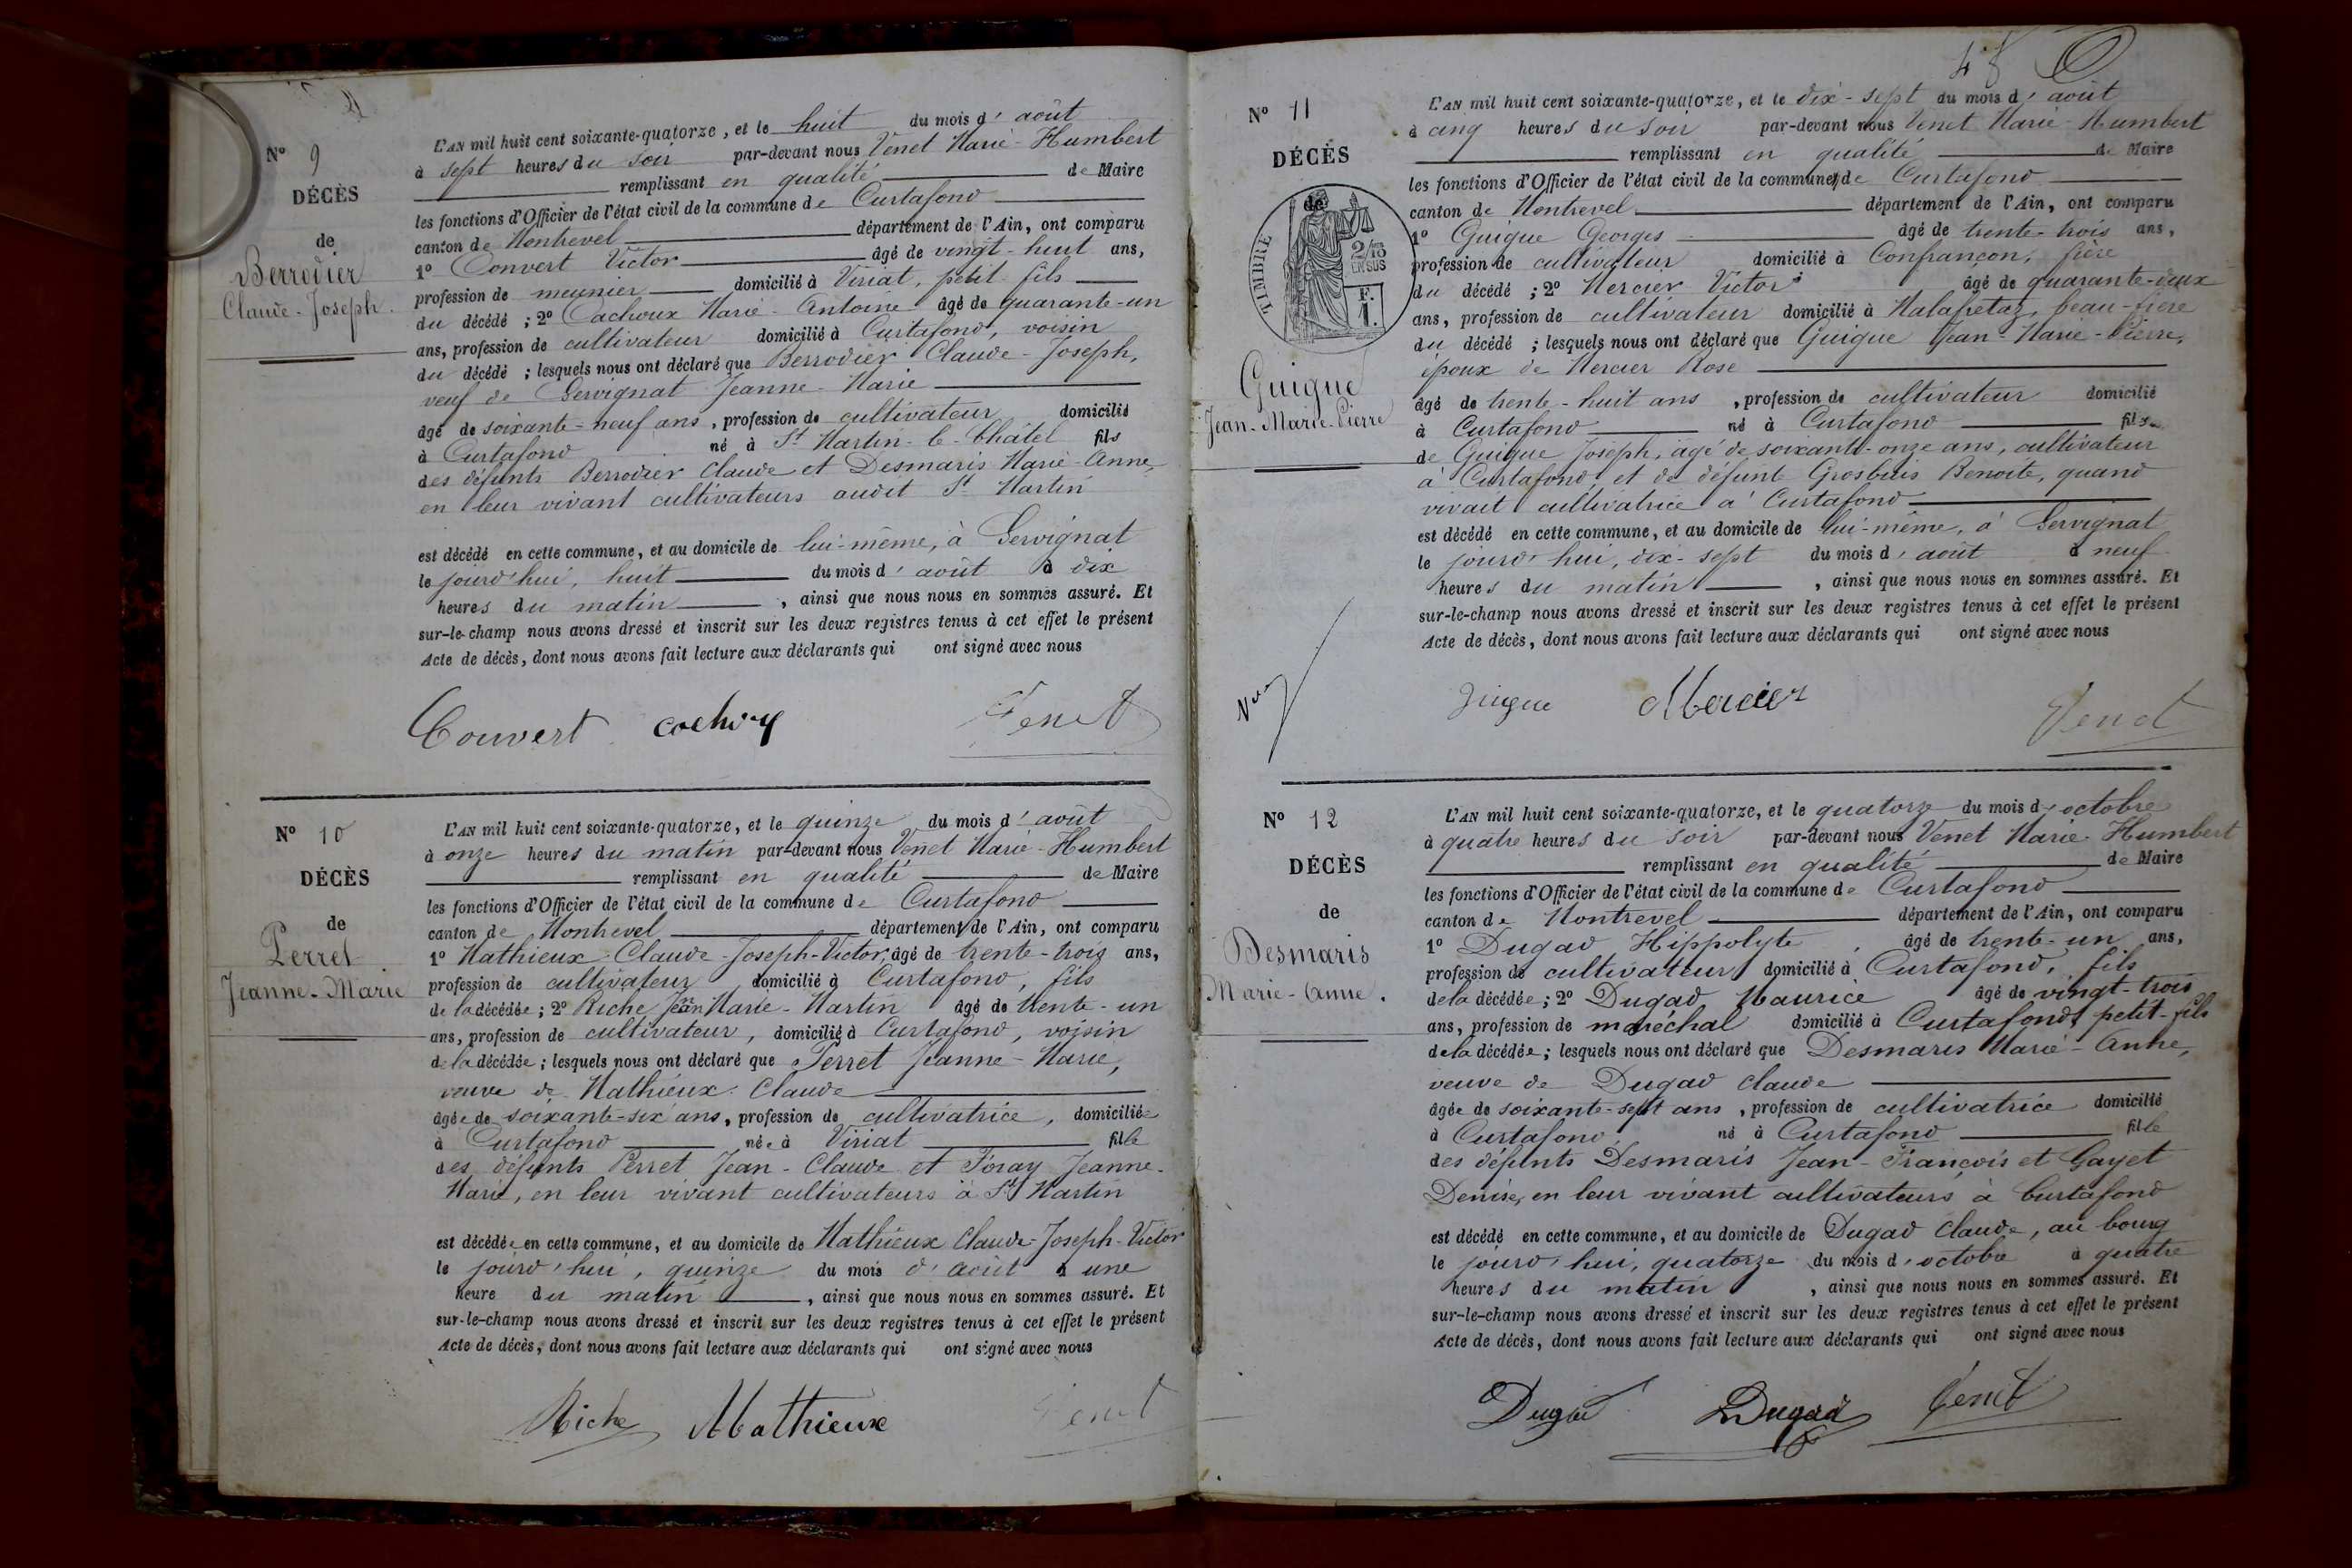 N° 9
DÉCÈS
de
Berrodier
Claude-Joseph.
L'AN mil huit cent soixante-quatorze, et le huit du mois d'août
à sept heures du soir par-devant nous Venet Marie-Humbert
remplissant en qualité de Maire
les fonctions d'Officier de l'état civil de la commune de Curtafond
canton de Montrevel département de l'Ain, ont comparu
1° Convert Victor âgé de vingt-huit ans,
profession de meunier domicilié à Viriat, petit fils
du décédé ; 2° Cachoux Marie-Antoine âgé de quarante-un
ans, profession de cultivateur domicilié à Curtafond, voisin
du décédé ; lesquels nous ont déclaré que Berrodier Claude-Joseph,
veuf de Gervignat Jeanne-Marie
âgé de soixante-neuf ans, profession de cultivateur domicilié
à Curtafond né à St Martin-le-Châtel fils
des défunts Berrodier Claude et Desmaris Marie-Anne,
en leur vivant cultivateurs audit St Martin
est décédé en cette commune, et au domicile de lui-même, à Gervignat
le jourd'hui, huit du mois d'août à dix
heures du matin, ainsi que nous nous en sommes assuré. Et
sur-le-champ nous avons dressé et inscrit sur les deux registres tenus à cet effet le présent
Acte de décès, dont nous avons fait lecture aux déclarants qui ont signé avec nous
Convert Venet
N° 10
DÉCÈS
de
Perret
Jeanne-Marie
L'AN mil huit cent soixante-quatorze, et le quinze du mois d'août
à onze heures du matin par-devant nous Venet Marie-Humbert
remplissant en qualité de Maire
les fonctions d'Officier de l'état civil de la commune de Curtafond
canton de Montrevel département de l'Ain, ont comparu
1° Mathieux Claude-Joseph-Victor, âgé de trente-trois ans,
profession de cultivateur domicilié à Curtafond, fils
de la décédée ; 2° Riche Jean Marie-Martin âgé de trente-un
ans, profession de cultivateur, domicilié à Curtafond, voisin
de la décédée ; lesquels nous ont déclaré que Perret Jeanne-Marie,
veuve de Mathieux Claude
âgée de soixante-six ans, profession de cultivatrice, domiciliée
à Curtafond née à Viriat fille
des défunts Perret Jean-Claude et Féray Jeanne-
Marie, en leur vivant cultivateurs à St Martin
est décédée en cette commune, et au domicile de Mathieux Claude-Joseph-Victor
le jourd'hui, quinze du mois d'août à une
heure du matin, ainsi que nous nous en sommes assuré. Et
sur-le-champ nous avons dressé et inscrit sur les deux registres tenus à cet effet le présent
Acte de décès, dont nous avons fait lecture aux déclarants qui ont signé avec nous
Riche Mathieux Venet
48
N° 11
DÉCÈS
de
TIMBRE
2/10
EN SUS
F.
1.
Guigue
Jean-Marie-Pierre
Vu
L'AN mil huit cent soixante-quatorze, et le dix-sept du mois d'août
à cinq heures du soir par-devant nous Venet Marie-Humbert
remplissant en qualité de Maire
les fonctions d'Officier de l'état civil de la commune de Curtafond
canton de Montrevel département de l'Ain, ont comparu
1° Guigue Georges âgé de trente-trois ans,
profession de cultivateur domicilié à Confrançon, frère
du décédé ; 2° Mercier Victor âgé de quarante-deux
ans, profession de cultivateur domicilié à Malafretaz, beau-frère
du décédé ; lesquels nous ont déclaré que Guigue Jean-Marie-Pierre,
époux de Mercier Rose
âgé de trente-huit ans, profession de cultivateur domicilié
à Curtafond né à Curtafond fils
de Guigue Joseph, âgé de soixante-onze ans, cultivateur
à Curtafond, et de défunte Grosbuis Benoite, quand
vivait cultivatrice à Curtafond
est décédé en cette commune, et au domicile de lui-même, à Gervignat
le jourd'hui, dix-sept du mois d'août à neuf
heures du matin, ainsi que nous nous en sommes assuré. Et
sur-le-champ nous avons dressé et inscrit sur les deux registres tenus à cet effet le présent
Acte de décès, dont nous avons fait lecture aux déclarants qui ont signé avec nous
Guigue Mercier Venet
N° 12
DÉCÈS
de
Desmaris
Marie-Anne.
L'AN mil huit cent soixante-quatorze, et le quatorze du mois d'octobre
à quatre heures du soir par-devant nous Venet Marie-Humbert
remplissant en qualité de Maire
les fonctions d'Officier de l'état civil de la commune de Curtafond
canton de Montrevel département de l'Ain, ont comparu
1° Dugad Hippolyte, âgé de trente-un ans,
profession de cultivateur domicilié à Curtafond, fils
de la décédée ; 2° Dugad Maurice âgé de vingt-trois
ans, profession de maréchal domicilié à Curtafond, petit-fils
de la décédée ; lesquels nous ont déclaré que Desmaris Marie-Anne,
veuve de Dugad Claude
âgée de soixante-sept ans, profession de cultivatrice domicilié
à Curtafond, né à Curtafond fille
des défunts Desmaris Jean-François et Gayet
Denise, en leur vivant cultivateurs à Curtafond
est décédé en cette commune, et au domicile de Dugad Claude, au bourg
le jourd'hui, quatorze du mois d'octobre à quatre
heures du matin, ainsi que nous nous en sommes assuré. Et
sur-le-champ nous avons dressé et inscrit sur les deux registres tenus à cet effet le présent
Acte de décès, dont nous avons fait lecture aux déclarants qui ont signé avec nous
Dugad Dugad Venet